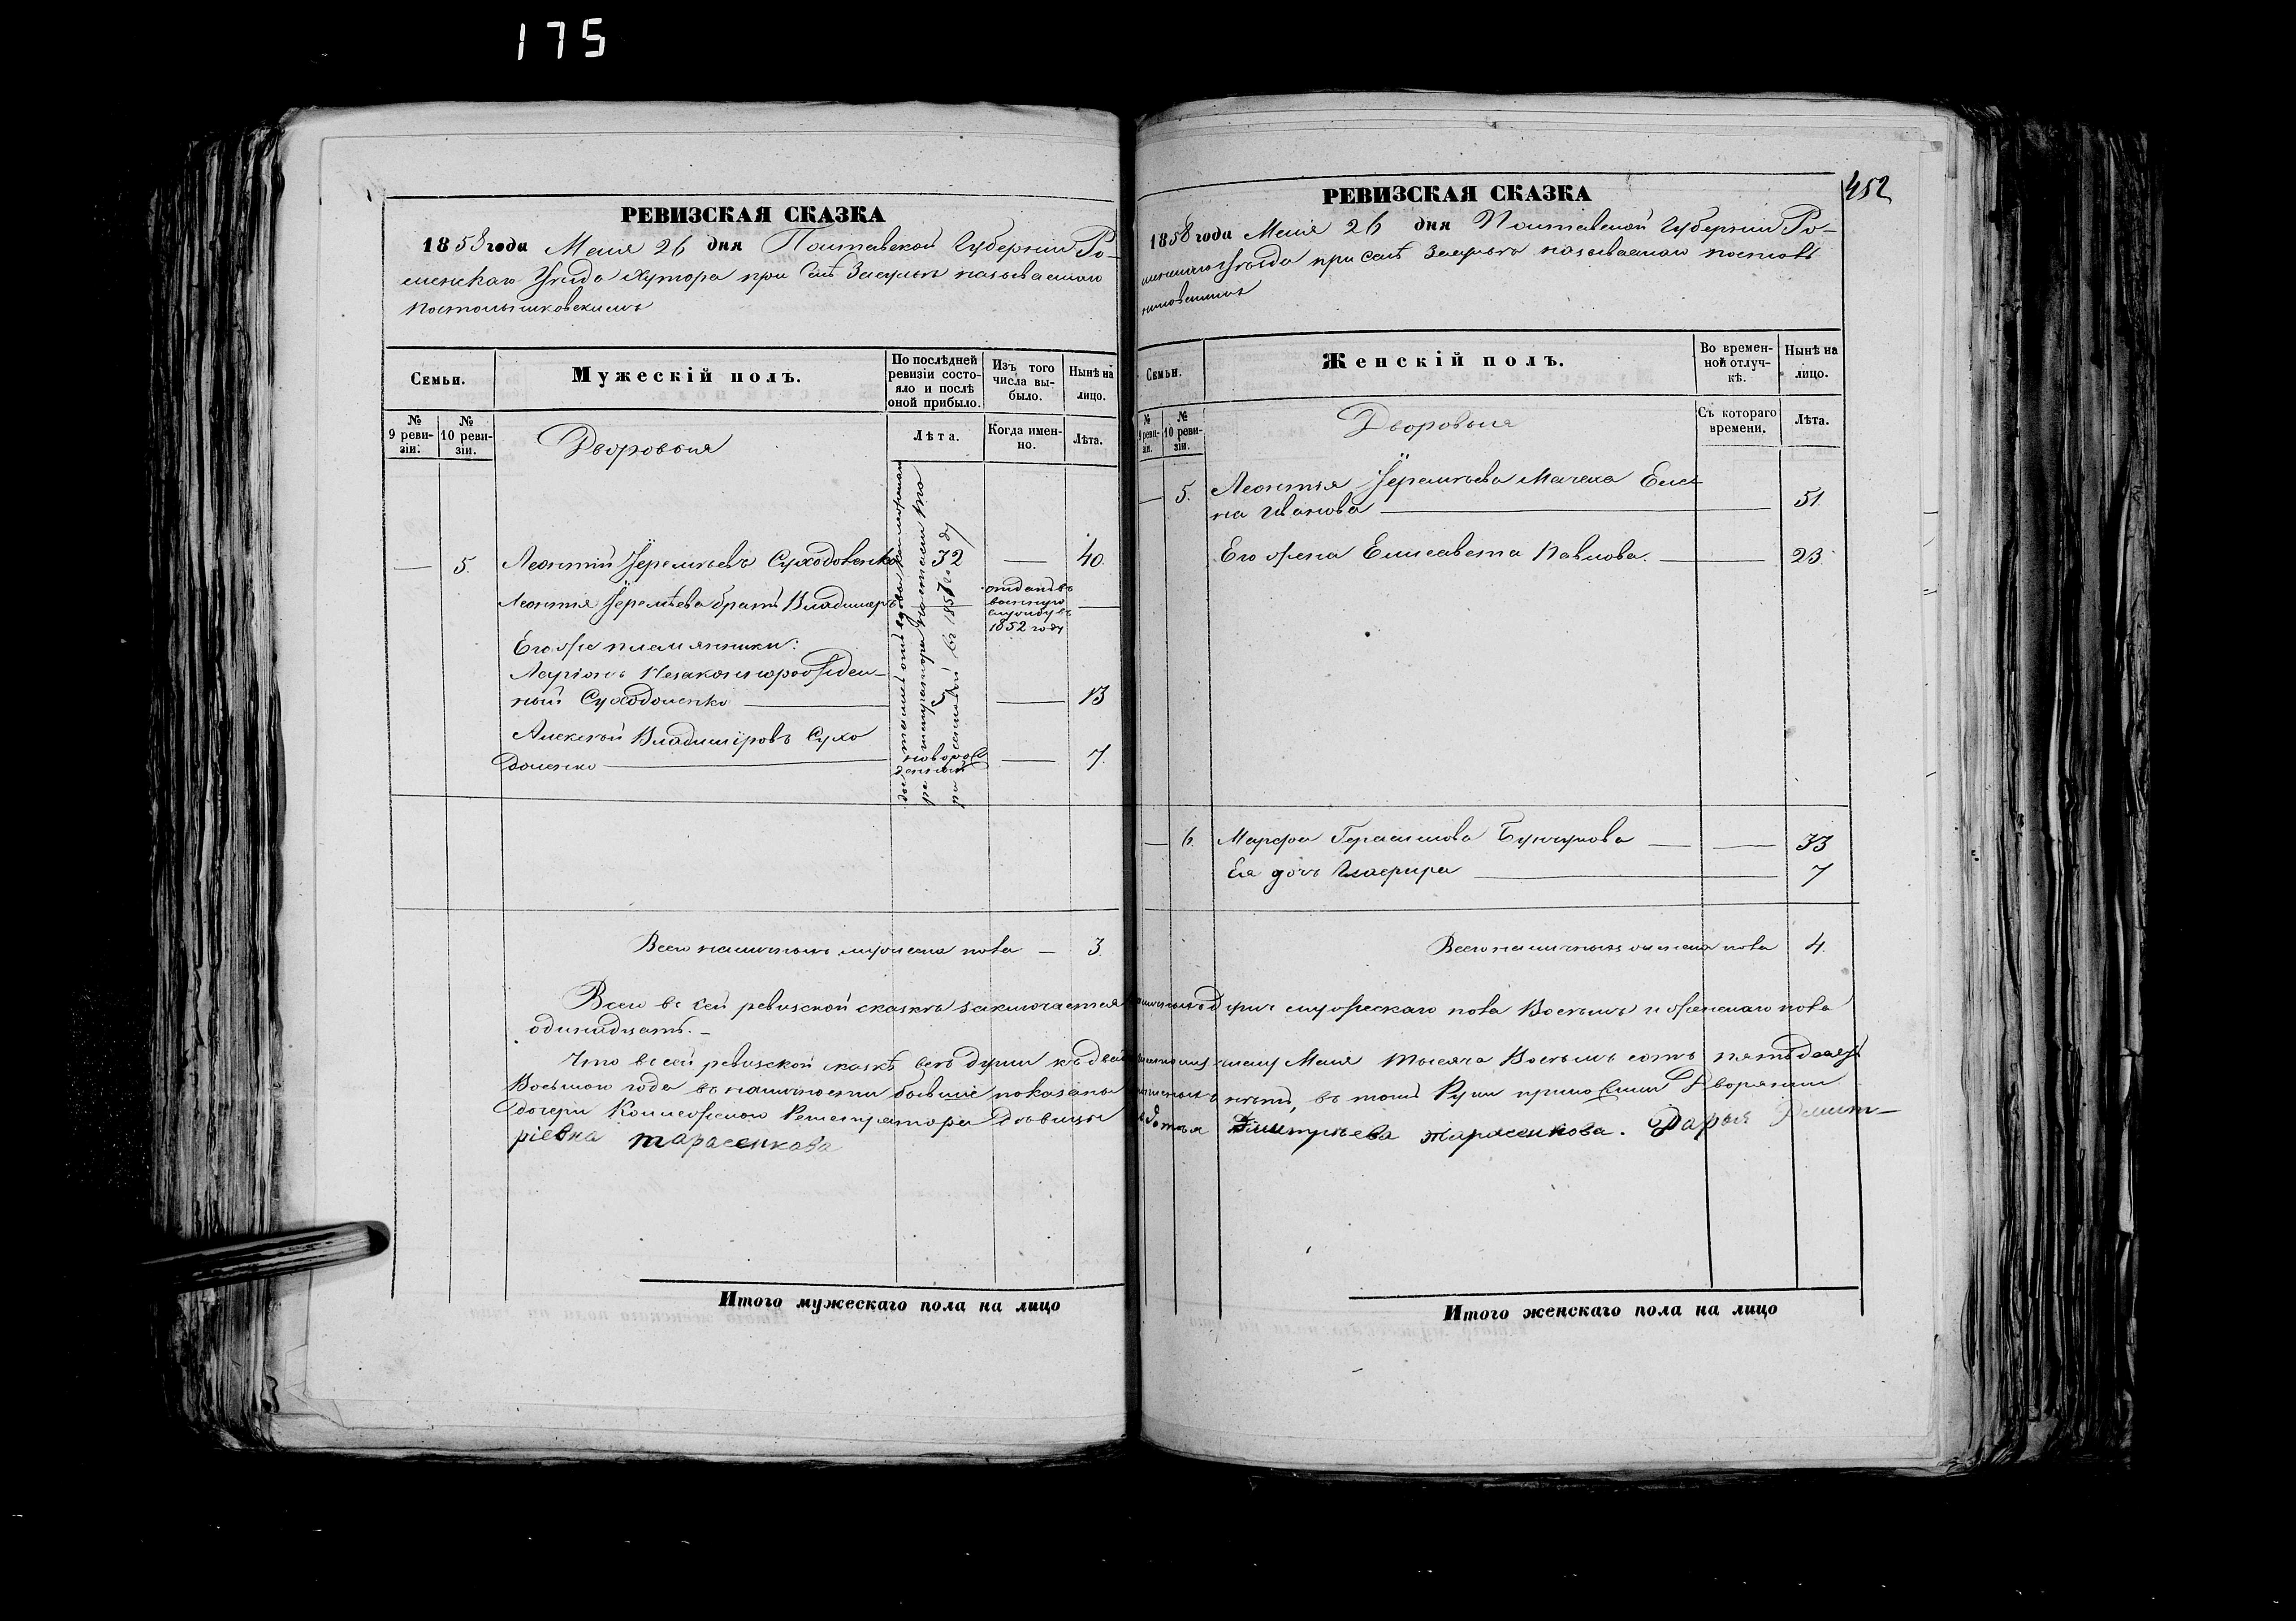 175
РЕВИЗСКАЯ СКАЗКА
1858 года Маія 26 дня Полтавской Губерніи Ро-
менскаго Уѣзда Хутора при Селѣ Засульѣ называемаго
Семьи.
Мужескій полъ.
По послѣдней ревизіи состо-
яло и послѣ
оной прибыло.
Изъ того
числа вы-
было.
Нынѣ на
лицо.
№
9 реви-
зіи.
№
10 реви-
зіи.
Дворовыя
Лѣта.
Когда имен-
но.
Лѣта.
5. Леонтій Іеремѣевъ Суходоленко 32 — 40.
Леонтія Іеремѣева братъ Владимеръ
отданъ въ
военную
службу въ
1852 году
Его же племянники:
Ларіонъ Незаконнорожден-
ный Суходоленко 5 — 13
Алексѣй Владиміровъ Сухо
доленко
новорож
денный
— 7.
достались отъ
регистратора
въ 1857 году
Всего наличныхъ мужеска пола — 3.
РЕВИЗСКАЯ СКАЗКА
452
1858 года Маія 26 дня Полтавской Губерніи Ро-
менскаго Уѣзда при селѣ Засульѣ называемаго
Семьи.
Женскій полъ.
Во времен-
ной отлуч-
кѣ.
Нынѣ на
лицо.
№
9 реви-
зіи.
№
10 реви-
зіи.
Дворовыя
Съ котораго
времени.
Лѣта.
5. Леонтія Іеремѣева Мачеха Еле
на Иванова — 51.
Его жена Елисавета Павлова. — 23.
6. Марфа Герасимова — 33
Ея дочь Глафира — 7
Всего наличныхъ женска пола 4.
Всего въ сей ревизской сказкѣ заключается наличныхъ душъ мужескаго пола Восемь и женскаго пола
одинадцать. —
Что въ сей ревизской сказкѣ всѣ души къ Маія тысяча Восемь сотъ пятьдесятъ
Восьмаго года въ наличности бывшіе показаны нѣтъ, въ томъ Руки приложили Дворянин
дочери Коллежскаго Регистратора Дѣвицы Дмитріева Тарасенкова. Дарья Дмит-
ріевна Тарасенкова
Итого мужескаго пола на лицо
Итого женскаго пола на лицо